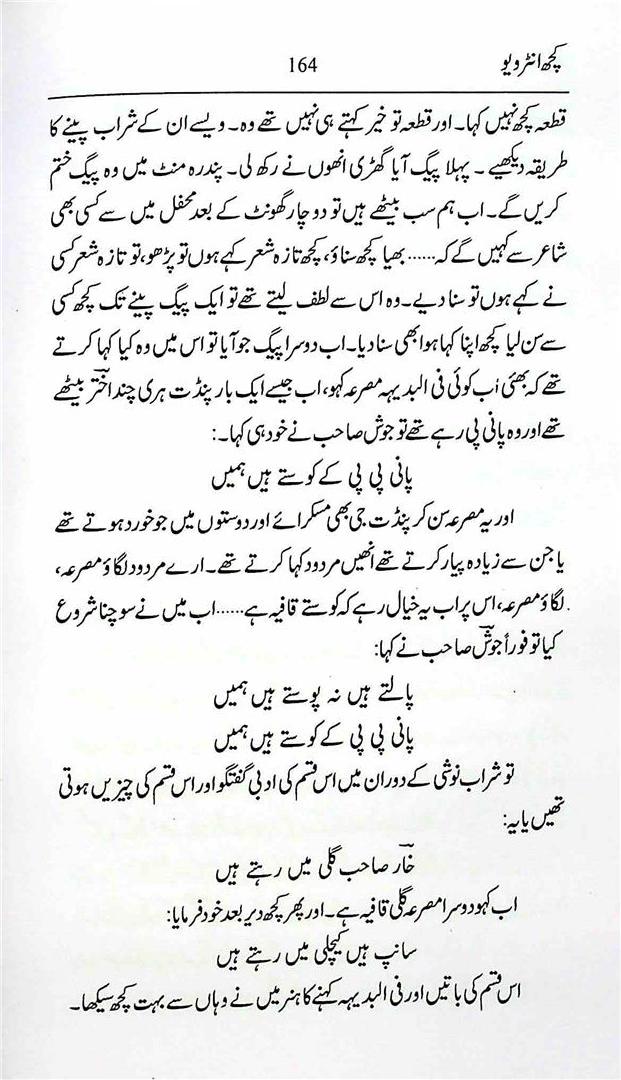 کچھ انٹرویو
164
قطعہ کچھ نہیں کہا۔ اور قطعہ تو خیر کہتے ہی نہیں تھے وہ۔ ویسے ان کے شراب پینے کا
طریقہ دیکھیے۔ پہلا پیگ آیا گھڑی انھوں نے رکھ لی۔ پندرہ منٹ میں وہ پیگ ختم
کریں گے۔ اب ہم سب بیٹھے ہیں تو دو چار گھونٹ کے بعد محفل میں سے کسی بھی
شاعر سے کہیں گے کہ...... بھیا کچھ سناؤ، کچھ تازہ شعر کہے ہوں تو پڑھو، تو تازہ شعر کسی
نے کہے ہوں تو سنا دیے۔ وہ اس سے لطف لیتے تھے تو ایک پیگ پینے تک کچھ کسی
سے سن لیا کچھ اپنا کہا ہوا بھی سنا دیا۔ اب دوسرا پیگ جو آیا تو اس میں وہ کیا کہا کرتے
تھے کہ بھئی اب کوئی فی البدیہہ مصرعہ کہو، اب جیسے ایک بار پنڈت ہری چند اختر بیٹھے
تھے اور وہ پانی پی رہے تھے تو جوش صاحب نے خود ہی کہا۔:
پانی پی پی کے کوستے ہیں ہمیں
اور یہ مصرعہ سن کر پنڈت جی بھی مسکرائے اور دوستوں میں جو خورد ہوتے تھے
یا جن سے زیادہ پیار کرتے تھے انھیں مردود کہا کرتے تھے۔ ارے مردود لگاؤ مصرعہ،
لگاؤ مصرعہ، اس پر اب یہ خیال رہے کہ کوستے قافیہ ہے...... اب میں نے سوچنا شروع
کیا تو فوراً جوش صاحب نے کہا:
پالتے ہیں نہ پوستے ہیں ہمیں
پانی پی پی کے کوستے ہیں ہمیں
تو شراب نوشی کے دوران میں اس قسم کی ادبی گفتگو اور اس قسم کی چیزیں ہوتی
تھیں یا یہ:
خار صاحب گلی میں رہتے ہیں
اب کہو دوسرا مصرعہ گلی قافیہ ہے۔ اور پھر کچھ دیر بعد خود فرمایا:
سانپ ہیں کیچلی میں رہتے ہیں
اس قسم کی باتیں اور فی البدیہہ کہنے کا ہنر میں نے وہاں سے بہت کچھ سیکھا۔